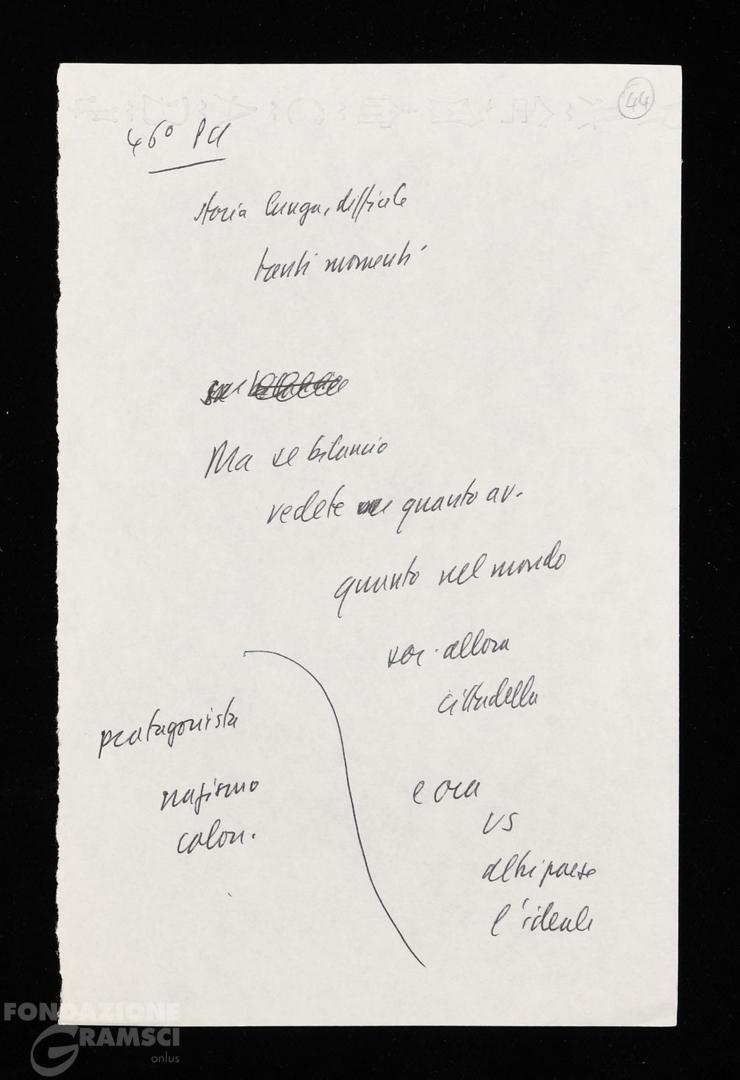 44
46° PCI
storia lunga, difficile
tanti momenti
Ma se bilancio
vedete quanto av.
quanto nel mondo
soc. allora
cittadella
protagonista
nazismo
colon.
e ora
US
altri paesi
l'ideale
FONDAZIONE
GRAMSCI
onlus